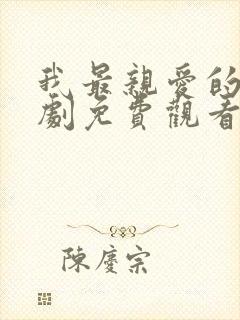 我最親愛的
劇免費觀看
陳慶宗